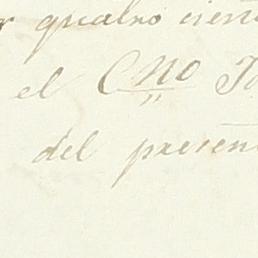 r quatro cien
el Cno
del presen